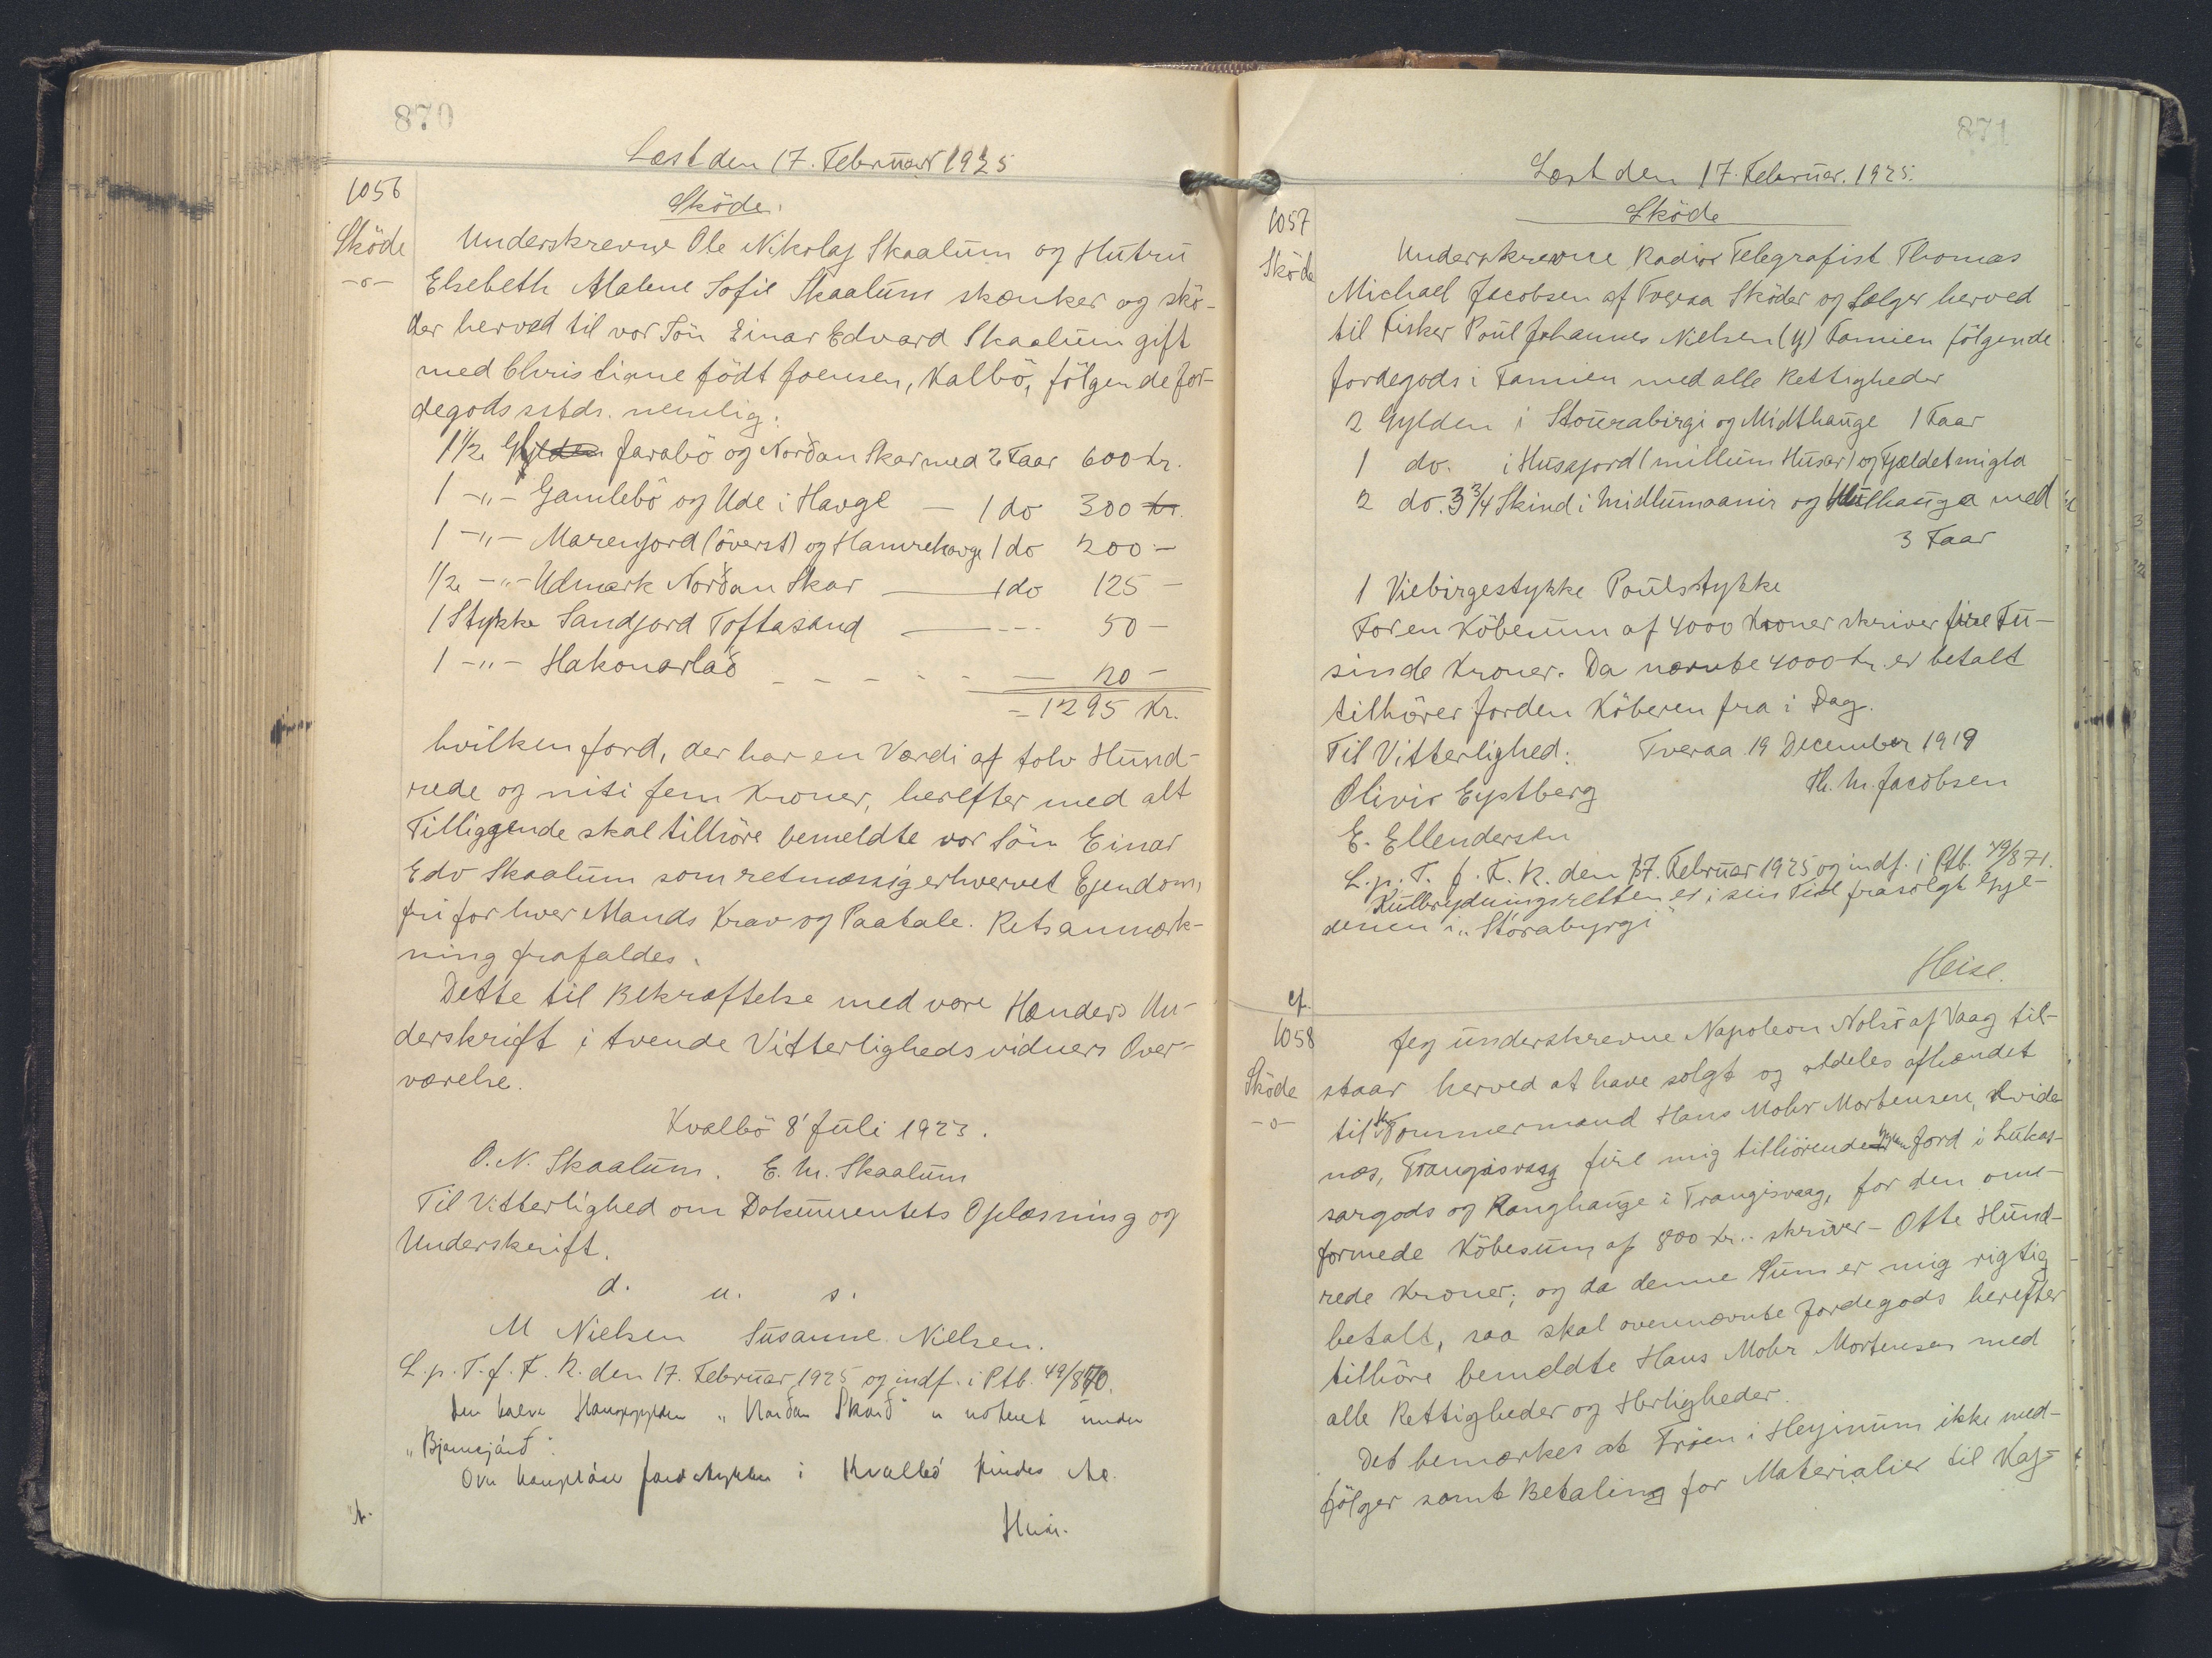 870
Læst den 17. Februar 1925
1056
Sköde.
Sköde
-o-
Underskrevne Ole Nikolaj Skaalum og Hutru
Elsebeth Malene Sofie Skaalum skænker og skö-
der herved til vor Sön Einar Edvard Skaalum gift
med Christiane födt Joensen, Kalbö, fölgende Jor-
degods sstds. nemlig:
1 1/2 Gylden Jarabö og Norðan Skar med 2 Faar 600 Kr.
1 -"- Gamlebö og Ude i Havge — 1 do 300 kr.
1 -"- Marenjord (överst) og Hamrehavge 1 do 200 -
1/2 -"- Udmark Norðan Skar — 1 do 125 -
1 Stykke Sandjord Toftasand — 50 -
1 -"- Hakonarlað — 20 -
= 1295 Kr.
hvilken Jord, der har en Værdi af tolv Hund-
rede og niti fem Kroner, herefter med alt
Tilliggende skal tilhöre bemeldte vor Sön Einar
Edv Skaalum som retmæssig erhvervet Ejendom,
fri for hver Mands Krav og Paatale. Retsanmærk-
ning frafaldes.
Dette til Bekræftelse med vore Hænders Un-
derskrift i tvende Vitterlighedsvidners Over-
værelse.
Kvalbö 8' Juli 1923.
O. N. Skaalum. E. M. Skaalum
Til Vitterlighed om Dokumentets Oplæsning og
Underskrift.
d. u. s.
M Nielsen Susanne Nielsen.
L. p. T. f. F. R. den 17. Februar 1925 og indf. i Ptb. 49/870.
Den halve "Norðan Skarð" er noteret under
"Bjarnajárð".
Over haugelöse Jordstykker i Kvalbö findes
Heise.
871
Læst den 17. Februar. 1925.
1057
Sköde
Sköde
Underskrevne Radio Telegrafist Thomas
Michael Jacobsen af Tveraa Sköder og sælger herved
til Fisker Poul Johannes Nielsen (y) Famien fölgende
Jordegods i Famien med alle Rettigheder
2 Gylden i Stourabirgi og Midthauge 1 Faar
1 do. i Husajord (millum Husar) og Fjældet migla
2 do. 3 3/4 Skind i Midlumaanir og Hulhauga med
3 Faar
1 Viebirgestykke Poulstykke
For en Köbesum af 4000 Kroner skriver fire Tu-
sinde Kroner. Da nævnte 4000 Kr. er betalt
tilhörer Jorden Köberen fra i Dag.
Til Vitterlighed: Tveraa 19 December 1919
Olivir Eystberg Th. M. Jacobsen
E. Ellendersen
L. p. T. f. F. R. den 17. Februar 1925 og indf. i Ptb. 49/871.
Kulbrydningsretten er i sin Tid frasolgt Gyl-
denen i "Stórabyrgi"
Heise.
1058
Sköde
-o-
Jeg underskrevne Napoleon Nolsö af Vaag til-
staar herved at have solgt og aldeles afhændet
til Tömmermand Hans Mohr Mortensen, Hvide
næs, Trangisvaag fire mig tilhörende Gylden Jord i Lukas-
sargods og Ranghauge i Trangisvaag, for den om-
formede Köbesum af 800 kr. skriver - Otte Hund-
rede Kroner; og da denne Sum er mig rigtig
betalt, saa skal ovennævnte Jordegods herefter
tilhöre bemeldte Hans Mohr Mortensen med
alle Rettigheder og Herligheder.
Det bemærkes at Tröen i Heyinum ikke med-
fölger samt Betaling for Materialier til Kaj-